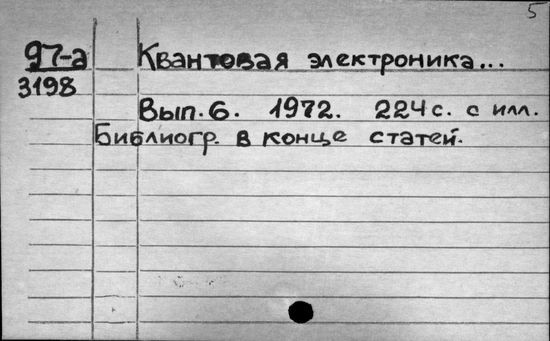 5
97-а Квантовая электроника...
3198
Вып. 6. 1972. 224 с. с илл.
Библиогр. в конце статей.